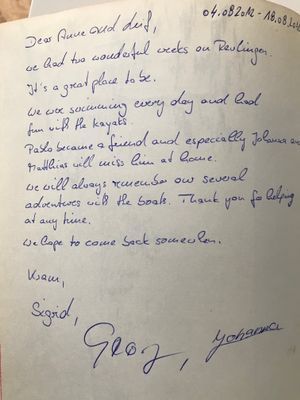 04.08.2012 - 18.08.2012
Dear Anne and Leif,
we had two wonderful weeks on
It's a great place to be.
We were swimming every day and had
fun with the kayaks.
Pablo became a friend and especially Johanna and
Matthias will miss him at home.
We will always remember our several
adventures with the boats. Thank you for helping
at any time.
We hope to come back somewhen.
Sigrid,
Georg, Johanna